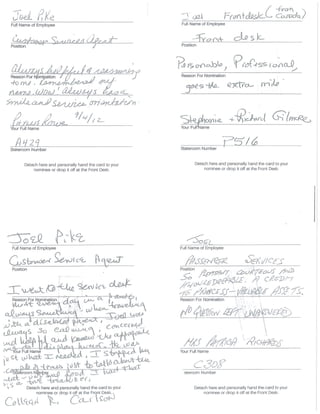 Joel Pike
Full Name of Employee
Customer Services Agent
Position
Always helpful & reassuring
Reason For Nomination
to me. Remembered our
name. Wow! Always have
smile and service orientation
9/4/12
Your Full Name
A429
Stateroom Number
Detach here and personally hand the card to your
nominee or drop it off at the Front Desk.
Joel Frontdesk (from Canada)
Full Name of Employee
Front desk
Position
Personable, Professional,
Reason For Nomination
goes the extra mile
Stephanie + Richard Gilmore
Your Full Name
P516
Stateroom Number
Detach here and personally hand the card to your
nominee or drop it off at the Front Desk.
Joel Pike
Full Name of Employee
Customer Service Agent
Position
I went to the service desk
Reason For Nomination
most every day in a
always something when traveling
with a disabled parent. Joel was
always so calming, concerned
and helpful and knew the appropriate
Your Full Name
what I needed. I stopped by
just to talk about the
and food I had that
Stateroom Number
Detach here and personally hand the card to your
nominee or drop it off at the Front Desk.
Colleen R. Carlson
Joel
Full Name of Employee
Passenger Services
Position
So patient courteous and
knowledgeable: A credit
to Princess - valuable assets.
Reason For Nomination
No question left unanswered
Mrs Patricia Richards
Your Full Name
C308
Stateroom Number
Detach here and personally hand the card to your
nominee or drop it off at the Front Desk.